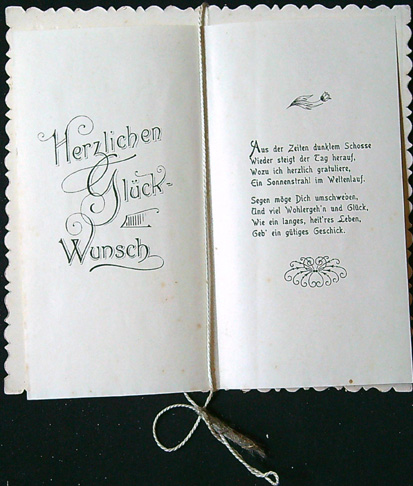 Herzlichen
Glück-
Wunsch
Aus der Zeiten dunklem Schosse
Wieder steigt der Tag herauf,
Wozu ich herzlich gratuliere,
Ein Sonnenstrahl im Weltenlauf.
Segen möge Dich umschweben,
Und viel Wohlergeh'n und Glück,
Wie ein langes, heit'res Leben,
Geb' ein gütiges Geschick.